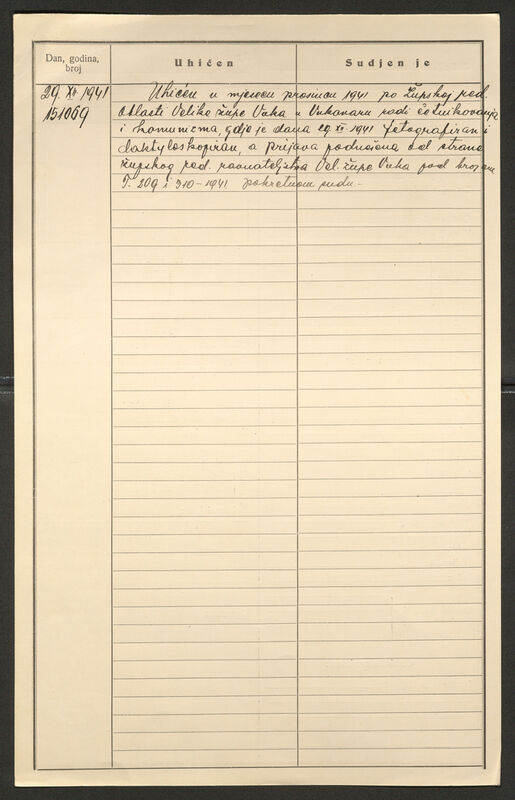 Dan, godina, broj
Uhićen
Sudjen je
29. XII. 1941
151069
Uhićen u mjesecu prosincu 1941 po Župskoj red.
oblasti Velike župe Vuka u Vukovaru radi četnikovanja
i komunizma, gdje je dana 29. XII. 1941 fotografiran i
daktyloskopiran, a prijava podnešena od strane
župskog red. ravnateljstva Vel. župe Vuka pod brojem
T. 209 i 310-1941 pokretnom sudu.-